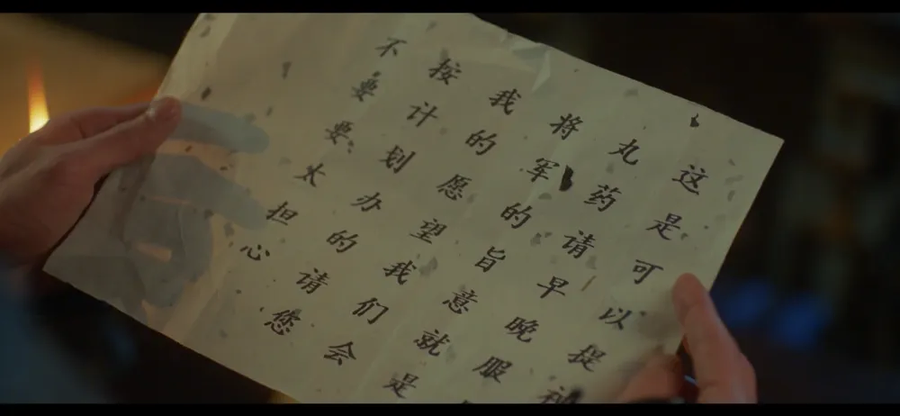 这是可以提神
丸药请早晚服
将军的旨意就是
我的愿望我们会
按计划办的请您
不要要太担心